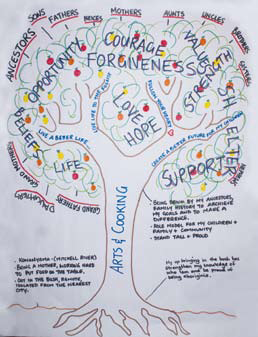 ANCESTORS
SONS
FATHERS
NEICES
MOTHERS
AUNTS
UNCLES
BROTHERS
SISTERS
NEPHEWS
GRAND MOTHERS
DAUGHTERS
GRAND FATHERS
OPPORTUNITY
COURAGE
FORGIVENESS
VALUES
STRENGTH
SHELTER
BELIEFS
LIFE
LOVE
HOPE
SUPPORT
LIVE A BETTER LIFE
LIVE LIFE TO THE FULLEST
FOLLOW YOUR DREAMS
CREATE A BETTER FUTURE FOR MY CHILDREN
ARTS & COOKING
• BEING DRIVEN BY MY ANCESTORS,
FAMILY HISTORY TO ACHIEVE
MY GOALS AND TO MAKE A
DIFFERENCE.
• ROLE MODEL FOR MY CHILDREN &
FAMILY & COMMUNITY
• STAND TALL & PROUD
(MITCHELL RIVER)
BEING A MOTHER, WORKING HARD
TO PUT FOOD IN THE TABLE.
• OUT IN THE BUSH, REMOTE,
ISOLATED FROM THE NEAREST
CITY.
My up bringing in the bush has
strengthen my knowledge of
who I am and be proud of
being Aboriginal.